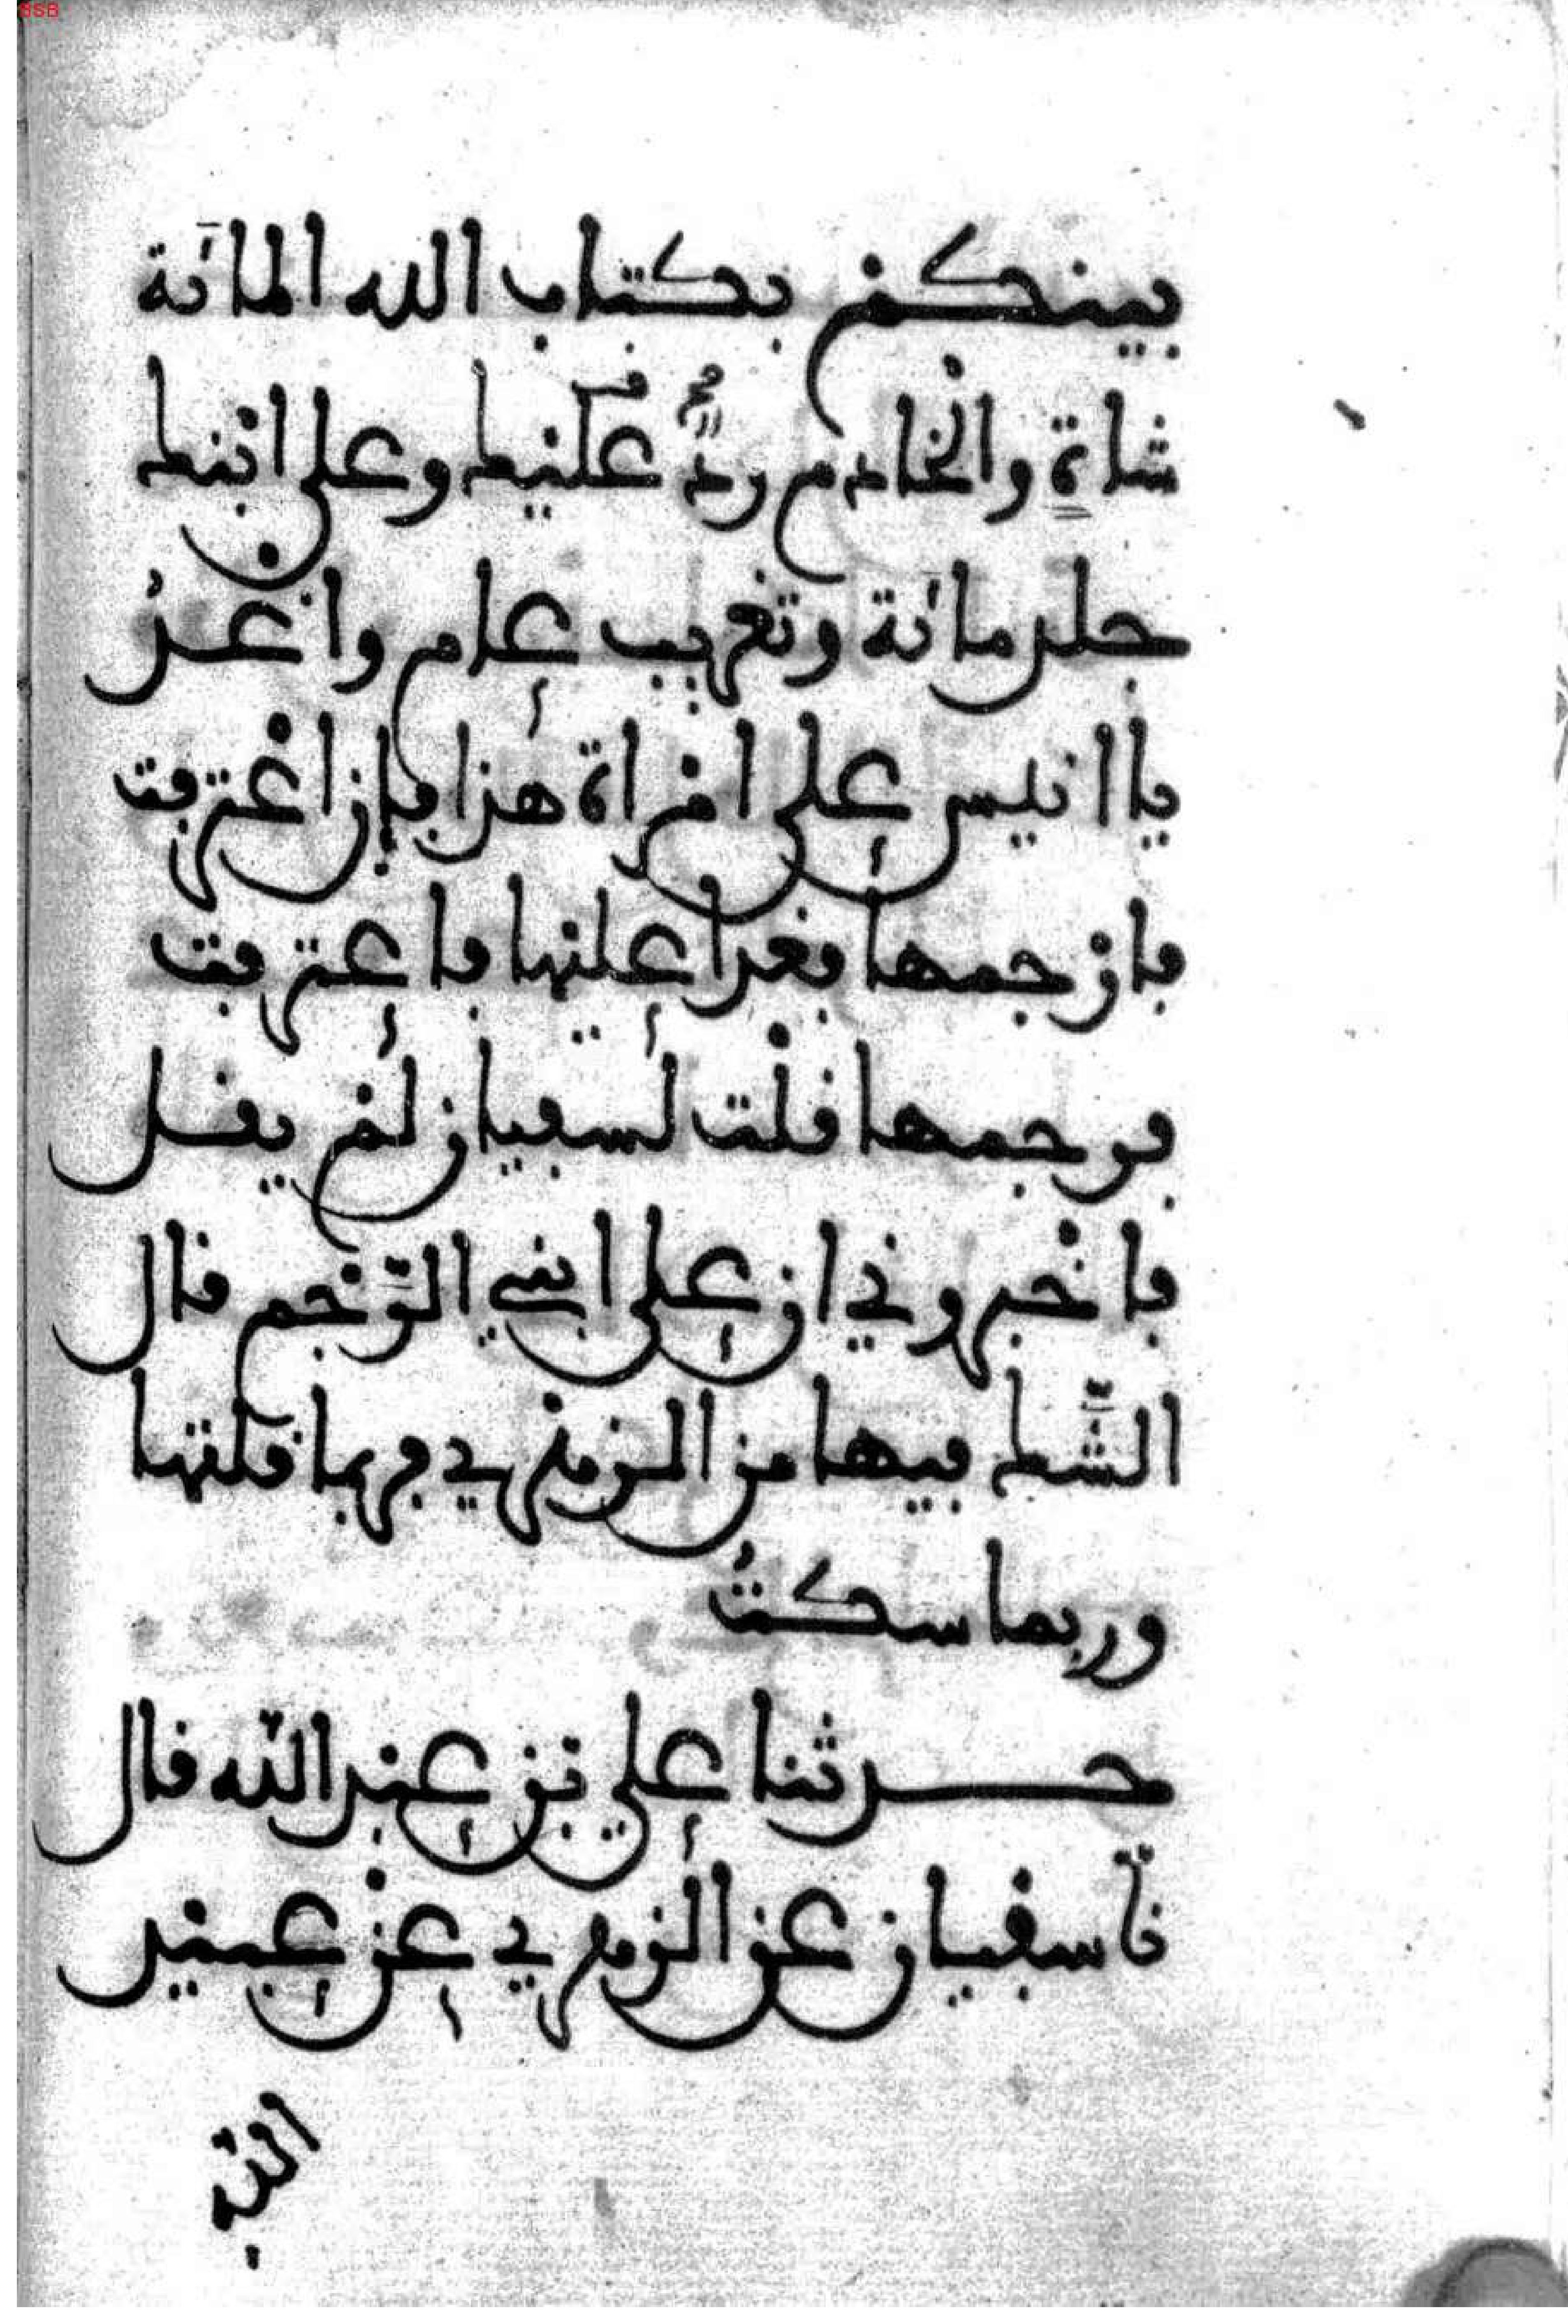 بينكم بكتاب الله المائة
شاة والخادم رد عليك وعلى ابنك
جلد مائة وتغريب عام واغد
يا انيس على امراة هذا فإن اعترفت
فارجمها فغدا عليها فاعترفت
فرجمها قلت لسفيان لم يقل
فاخبروني ان على ابني الرجم قال
الشك فيها من الزهري فربما قلتها
وربما سكت
حدثنا علي بن عبد الله قال
نا سفيان عن الزهري عن عبيد
الله
BSB